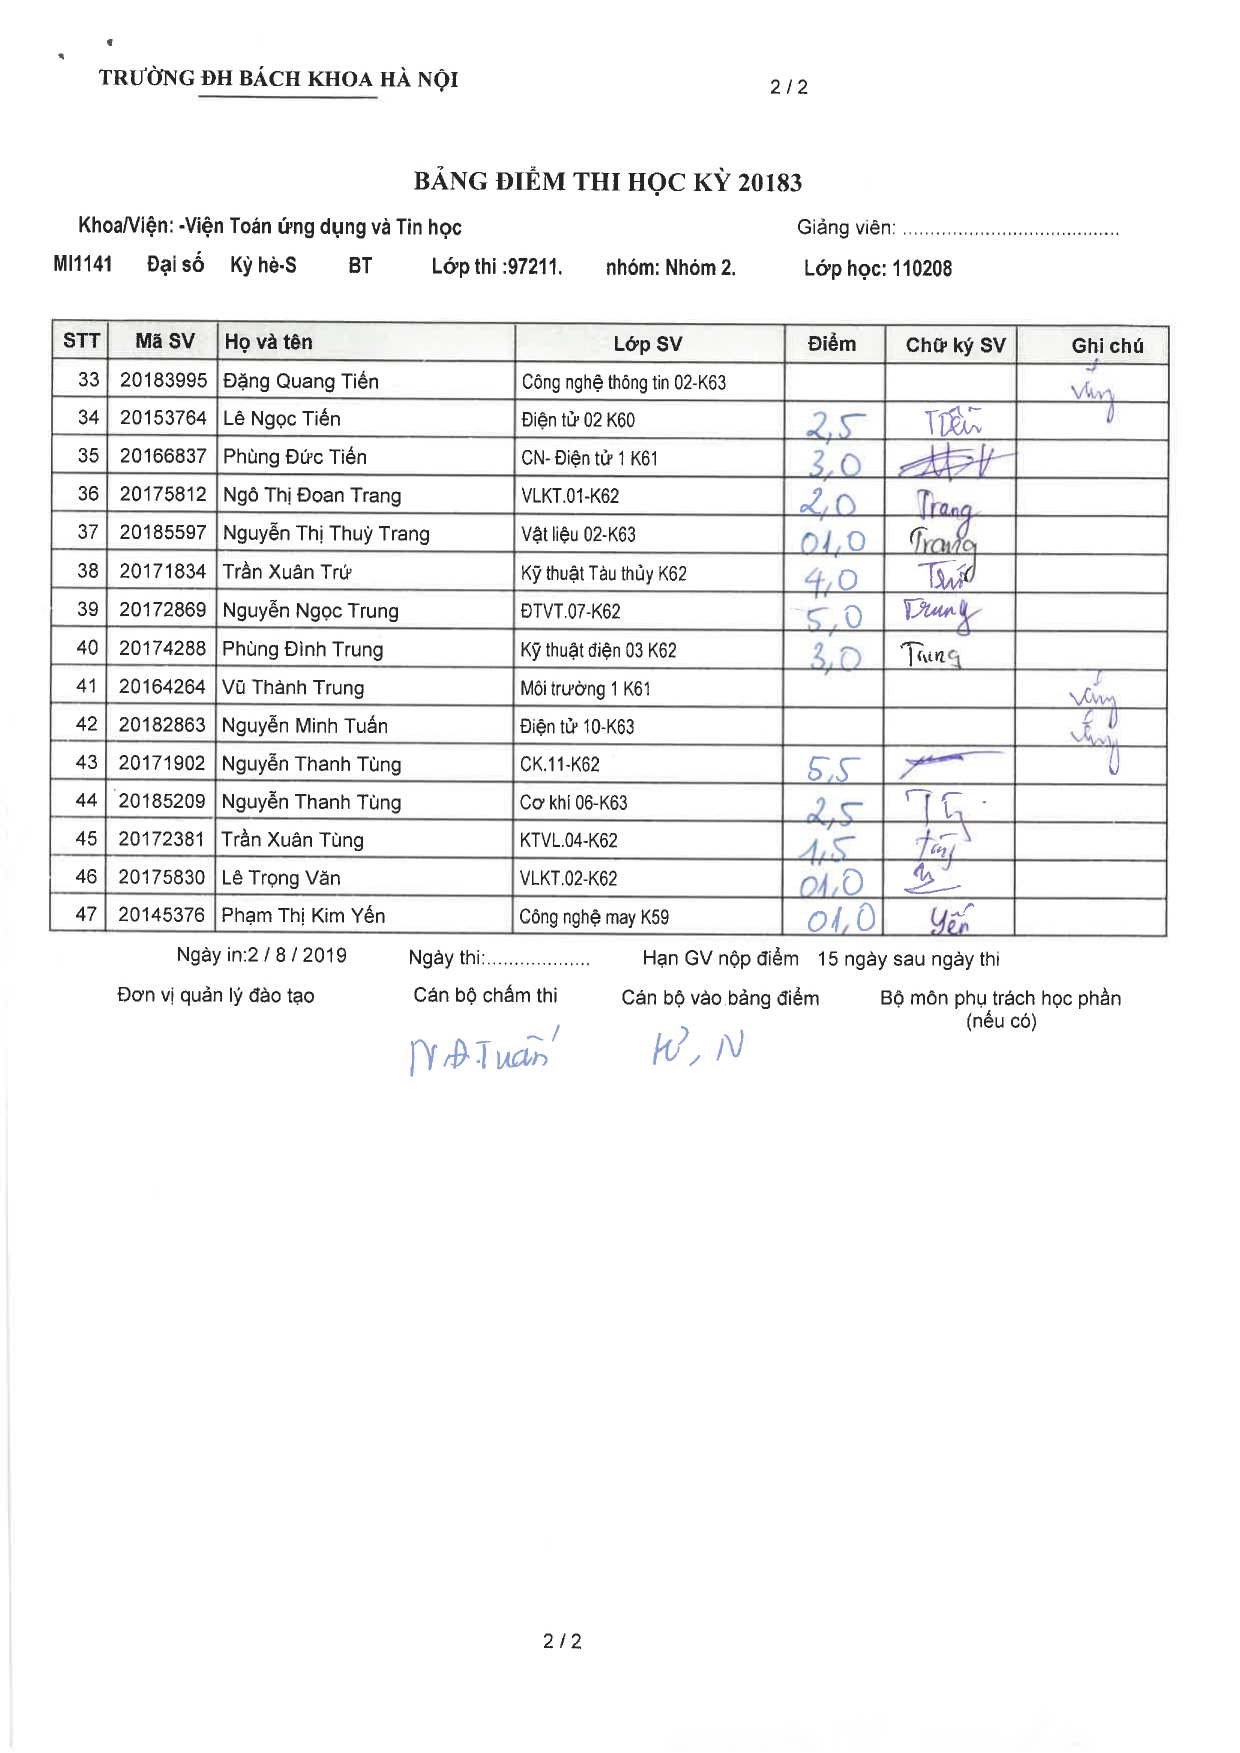 TRƯỜNG ĐH BÁCH KHOA HÀ NỘI
2 / 2
BẢNG ĐIỂM THI HỌC KỲ 20183
Khoa/Viện: -Viện Toán ứng dụng và Tin học Giảng viên: ........................................
MI1141 Đại số Kỳ hè-S BT Lớp thi :97211. nhóm: Nhóm 2. Lớp học: 110208
STT Mã SV Họ và tên Lớp SV Điểm Chữ ký SV Ghi chú
33 20183995 Đặng Quang Tiến Công nghệ thông tin 02-K63 vắng
34 20153764 Lê Ngọc Tiến Điện tử 02 K60 2,5 Tiến
35 20166837 Phùng Đức Tiến CN- Điện tử 1 K61 3,0
36 20175812 Ngô Thị Đoan Trang VLKT.01-K62 2,0 Trang
37 20185597 Nguyễn Thị Thuỳ Trang Vật liệu 02-K63 01,0 Trang
38 20171834 Trần Xuân Trứ Kỹ thuật Tàu thủy K62 4,0 Trứ
39 20172869 Nguyễn Ngọc Trung ĐTVT.07-K62 5,0 Trung
40 20174288 Phùng Đình Trung Kỹ thuật điện 03 K62 3,0 Trung
41 20164264 Vũ Thành Trung Môi trường 1 K61 vắng
42 20182863 Nguyễn Minh Tuấn Điện tử 10-K63 vắng
43 20171902 Nguyễn Thanh Tùng CK.11-K62 5,5
44 20185209 Nguyễn Thanh Tùng Cơ khí 06-K63 2,5
45 20172381 Trần Xuân Tùng KTVL.04-K62 1,5
46 20175830 Lê Trọng Văn VLKT.02-K62 01,0
47 20145376 Phạm Thị Kim Yến Công nghệ may K59 01,0 Yến
Ngày in:2 / 8 / 2019 Ngày thi:................... Hạn GV nộp điểm 15 ngày sau ngày thi
Đơn vị quản lý đào tạo Cán bộ chấm thi Cán bộ vào bảng điểm Bộ môn phụ trách học phần
(nếu có)
N.Đ.Tuấn
2 / 2